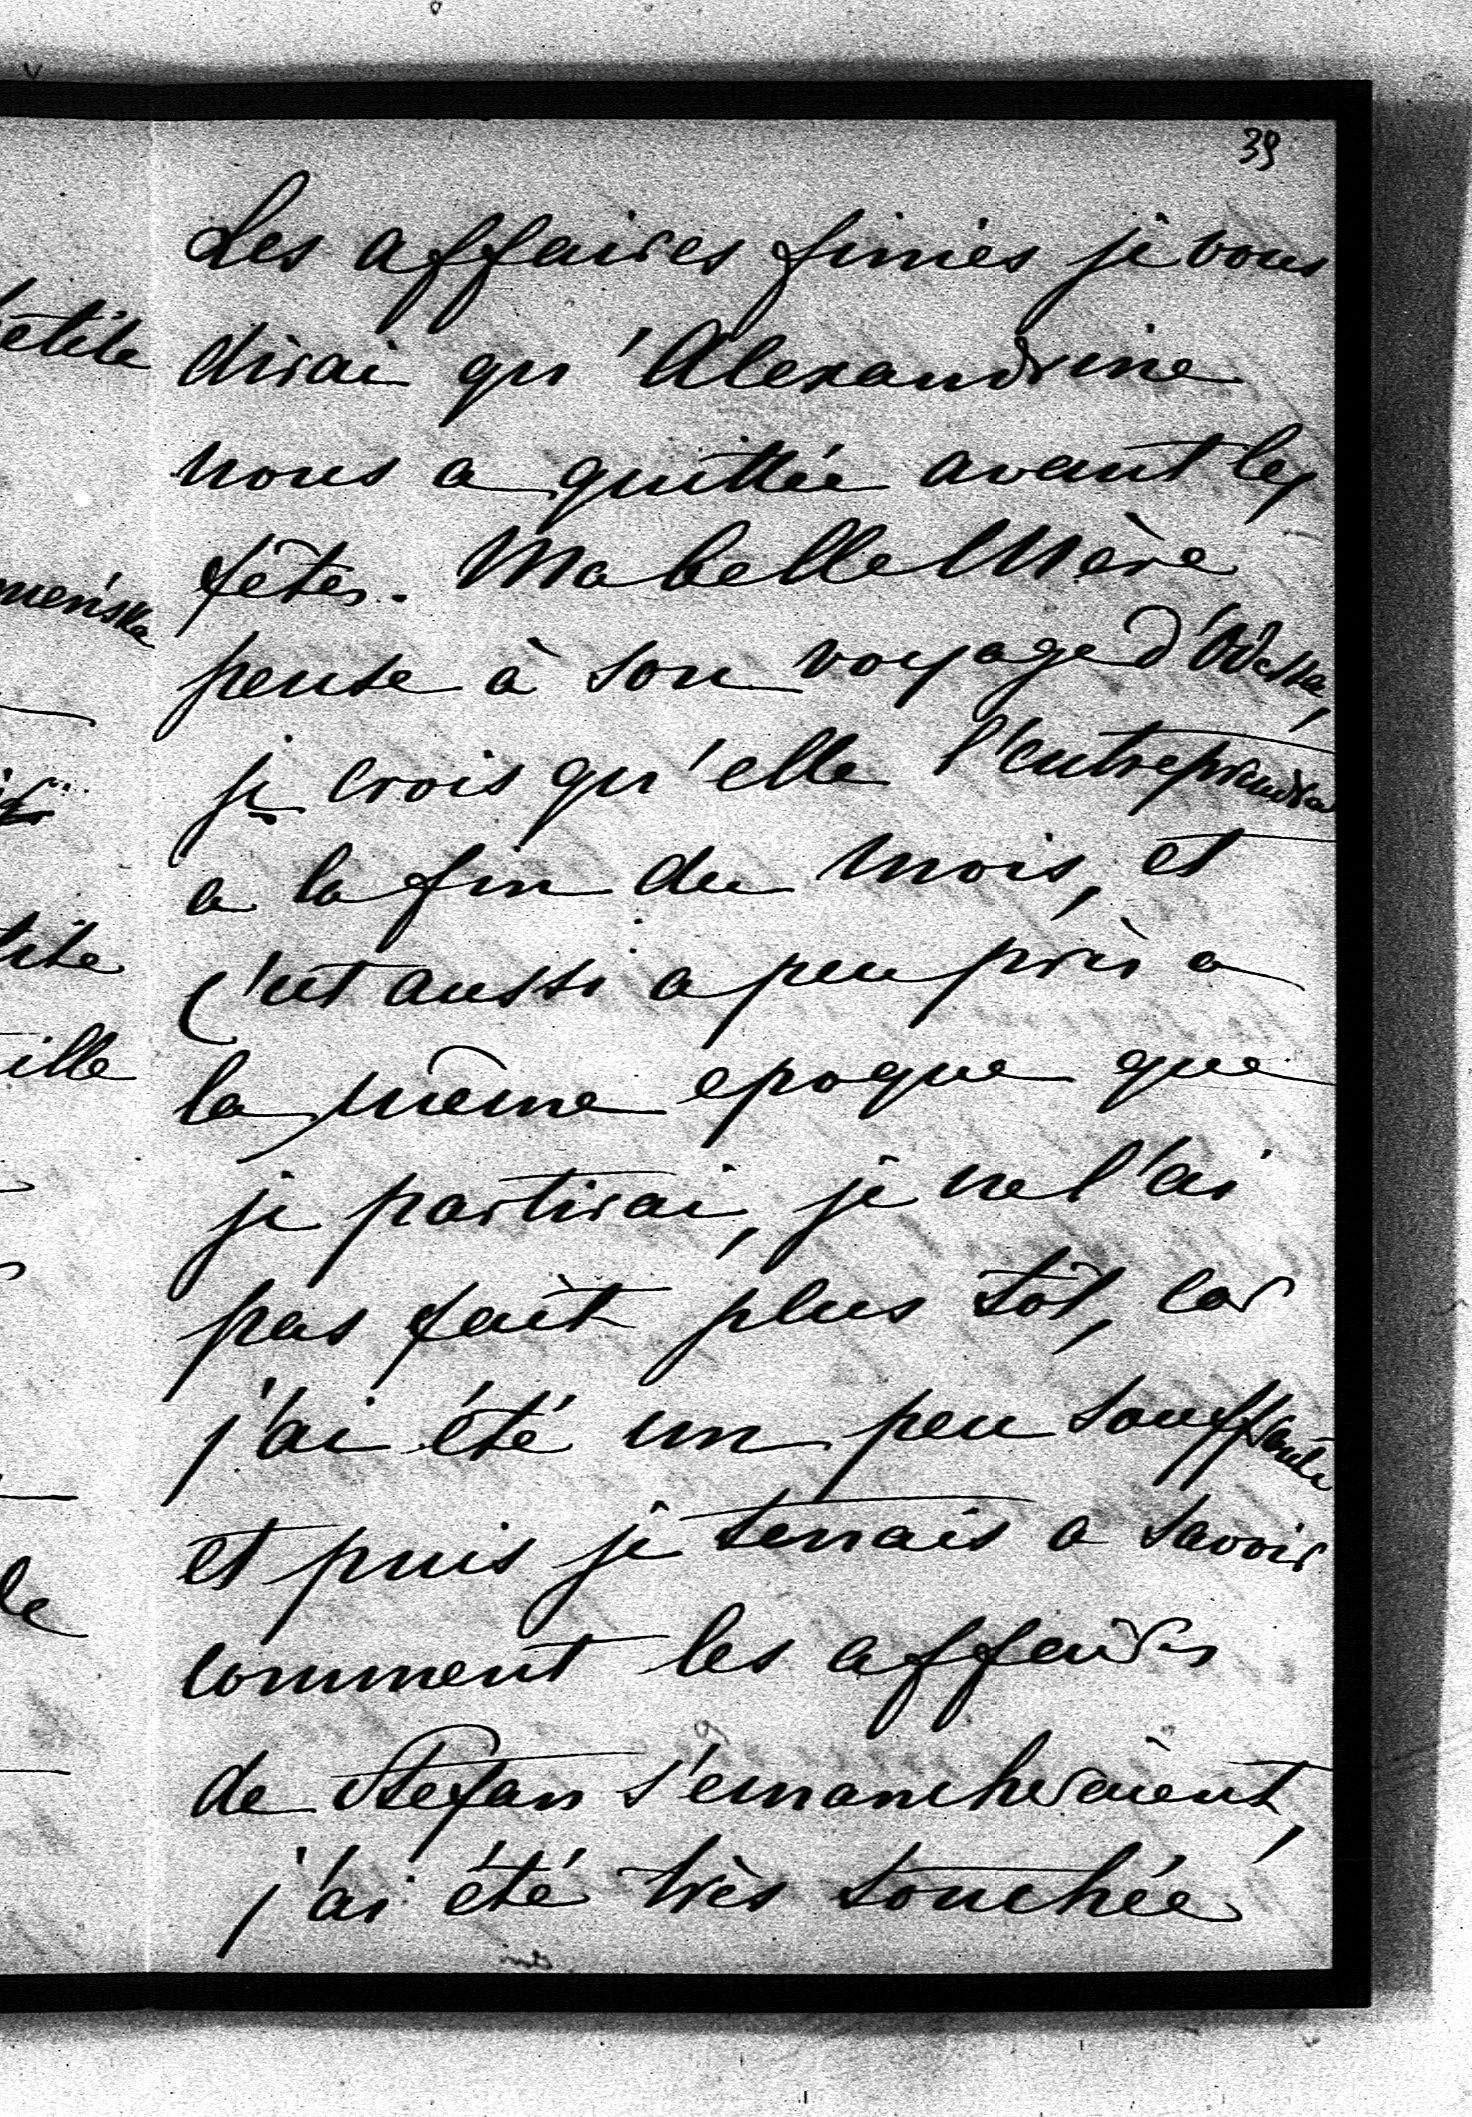 39
Les affaires finies je vous
dirai qu'Alexandrine
nous a quittée avant les
fêtes. Ma belle Mère
pense à son voyage d'Odessa,
je crois qu'elle l'entreprendra
a la fin du mois, et
c'est aussi a peu près a
la même epoque que
je partirai, je ne l'ai
pas fait plus tôt, car
j'ai été un peu souffrante
et puis je tenais a savoir
comment les affaires
de Stefan s'emancheraient,
j'ai été très touchée